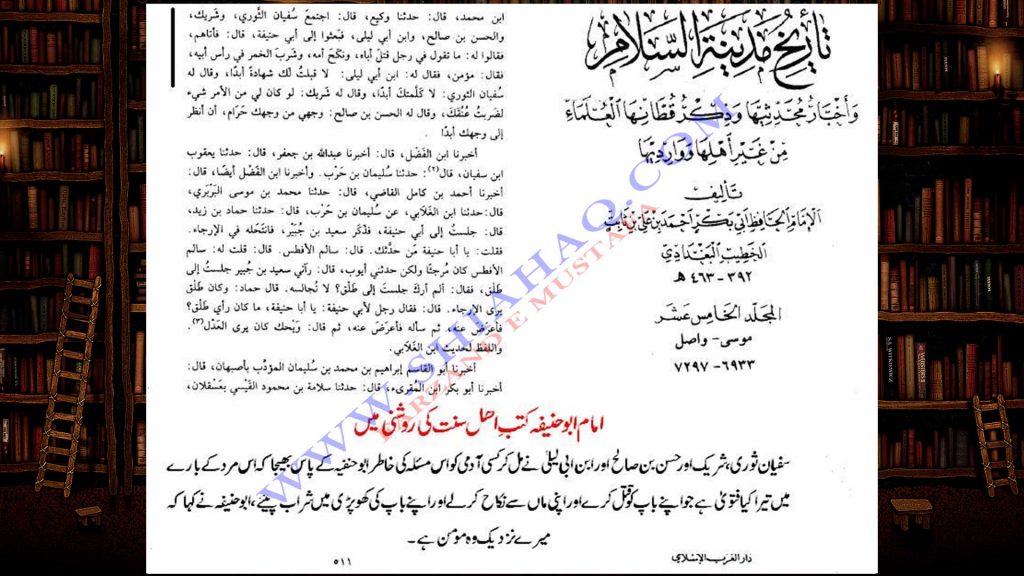 ابن محمد، قال: حدثنا وكيع، قال: اجتمعَ سُفيان الثَّوري، وشَريك،
والحسن بن صالح، وابن أبي ليلى، فبَعثُوا إلى أبي حنيفة، قال: فأتاهم،
فقالوا له: ما تقول في رجل قتلَ أباه، ونَكَحَ أمه، وشَربَ الخمر في رأس أبيه،
فقال: مؤمن، فقال له: ابن أبي ليلى: لا قَبلتُ لك شهادةً أبدًا، وقال له
سُفيان الثوري: لا كَلَّمتكَ أبدًا، وقال له شَريك: لو كان لي من الأمر شيء
لضَربتُ عُنُقَكَ، وقال له الحسن بن صالح: وجهي من وجهك حَرَام، أن أنظر
إلى وجهك أبدًا .
أخبرنا ابن الفَضْل، قال: أخبرنا عبدالله بن جعفر، قال: حدثنا يعقوب
ابن سفيان، قال(٢): حدثنا سُليمان بن حَرْب. وأخبرنا ابن الفَضْل أيضًا، قال:
أخبرنا أحمد بن كامل القاضي، قال: حدثنا محمد بن موسى البَرْبَري،
قال: حدثنا ابن الغَلابي، عن سُليمان بن حَرْب، قال: حدثنا حماد بن زيد،
قال: جلستُ إلى أبي حنيفة، فذَكَر سعيد بن جُبَيْر، فانتَحَله في الإرجاء.
فقلت: يا أبا حنيفة مَن حدَّثك. قال: سالم الأفطس. قال: قلت له: سالم
الأفطس كان مُرجئًا ولكن حدثني أيوب، قال: رآني سعيد بن جُبير جلستُ إلى
طَلْق، فقال: ألم أركَ جلستَ إلى طَلْق؟ لا تُجالسه. قال حماد: وكان طَلْق
يرى الإرجاء. قال: فقال رجل لأبي حنيفة: يا أبا حنيفة، ما كان رأي طَلْق؟
فأعرَضَ عنه، ثم سأله فأعرَضَ عنه، ثم قال: وَيْحك كان يرى العَدْل(٣).
واللفظ لحديث ابن الغَلابي.
أخبرنا أبو القاسم إبراهيم بن محمد بن سُليمان المؤدِّب بأصبهان، قال:
أخبرنا أبو بكر ابن المُقرىء، قال: حدثنا سلامة بن محمود القَيْسي بعَسْقلان،
تَأريخُ مَدِينَةِ السَّلَامِ
وَأَخْبَارُ مُحَدِّثِيْهَا وَذِكْرُ قُطَّانِهَا الْعُلَمَاءِ
مِنْ غَيْرِ أَهْلِهَا وَوَارِدِيْهَا
تَأليف
الإمَامِ الحَافِظِ أبي بَكْرٍ أحمَدَ بْنِ عَلِيِّ بْنِ ثَابِتٍ
الخَطِيبِ البَغْدَادِيِّ
٣٩٢-٤٦٣ هـ
المُجَلَّد الخَامِس عَشَر
موسى - واصل
٦٩٣٣-٧٢٩٧
امام ابو حنیفہ کتب اھل سنت کی روشنی میں
سفیان ثوری، شریک اور حسن بن صالح اور ابن ابی لیلیٰ نے مل کر کسی آدمی کو اس مسئلہ کی خاطر ابو حنفیہ کے پاس بھیجا کہ اس مرد کے بارے
میں تیرا کیا فتویٰ ہے جو اپنے باپ کو قتل کرے اور اپنی ماں سے نکاح کرلے اور اپنے باپ کی کھوپڑی میں شراب پیئے، ابو حنیفہ نے کہا کہ
میرے نزدیک وہ مؤمن ہے۔
٥١١
دار الغرب الإسلامي
WWW.SHIAHAQ.COM
FARZAND E MUSTAFA